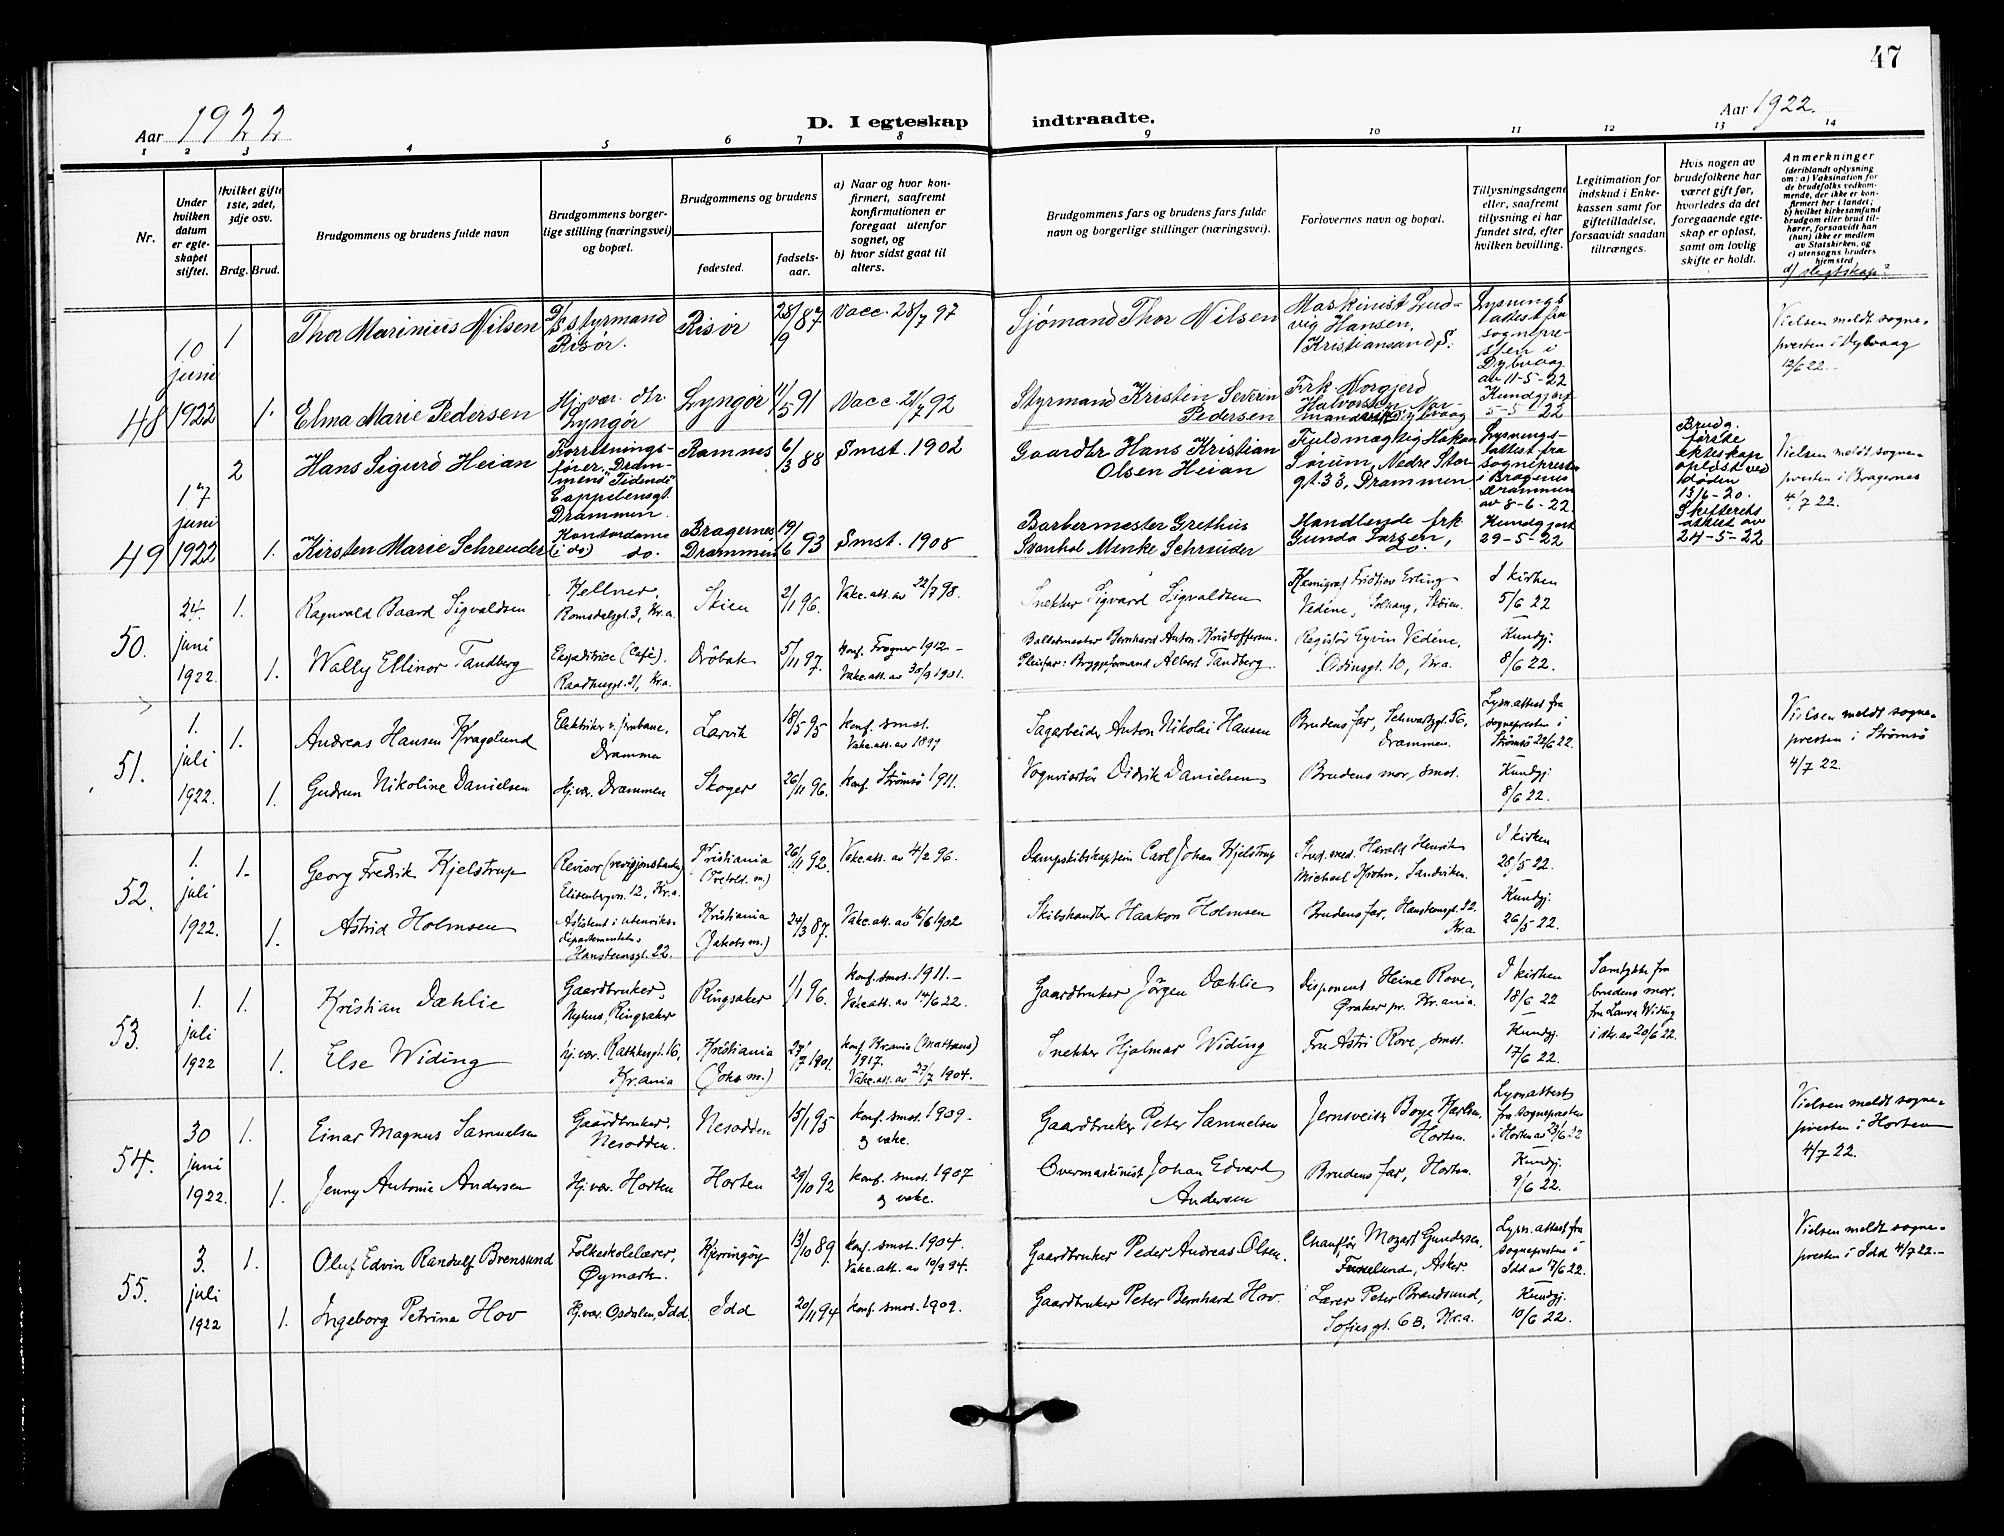 47
Aar 1922
D. I egteskap indtraadte.
Aar 1922.
1 2 3 4 5 6 7 8 9 10 11 12 13 14
Nr.
Under hvilken datum er egteskapet stiftet.
Hvilket gifte 1ste, 2det, 3dje osv.
Brdg. Brud.
Brudgommens og brudens fulde navn
Brudgommens borgerlige stilling (næringsvei) og bopæl.
Brudgommens og brudens
fødested.
fødselsaar.
a) Naar og hvor konfirmert, saafremt konfirmationen er foregaat utenfor sognet, og
b) hvor sidst gaat til alters.
Brudgommens fars og brudens fars fulde navn og borgerlige stillinger (næringsvei).
Forlovernes navn og bopæl.
Tillysningsdagene eller, saafremt tillysning ei har fundet sted, efter hvilken bevilling.
Legitimation for indskud i Enkekassen samt for giftetilladelse, forsaavidt saadan tiltrænges.
Hvis nogen av brudefolkene har været gift før, hvorledes da det foregaaende egteskap er opløst, samt om lovlig skifte er holdt.
Anmerkninger
(deriblandt oplysning om: a) Vaksination for de brudefolks vedkommende, der ikke er konfirmert her i landet; b) hvilket kirkesamfund brudgom eller brud tilhører, forsaavidt han (hun) ikke er medlem av Statskirken, og c) utensogns bruders hjemsted
d) slegtskap?
48
10 juni 1922
1
Thor Marinius Nilsen
styrmand Risør.
Risør
28/9 87
Vacc. 28/7 97
Sjømand Thor Nilsen
Maskinist Ludvig Hansen, Kristiansand S.
Lysnings attest fra sognepresten i Dybvaag av 11-5-22
Vielsen meldt sognepresten i Dybvaag 12/6 22.
1.
Elma Marie Pedersen
Hj. vær. dtr Lyngør
Lyngør
11/5 91
Vacc. 21/7 92
Styrmand Kristen Severin Pedersen
Frk Norgjerd Halvorsen
Dybvaag
Kundgjort 5-5-22
49
17 juni 1922
2
Hans Sigurd Heian
Forretningsfører "Drammens Tidende" Cappelensgt. Drammen.
Ramnes
6/3 88
Smst. 1902
Gaardbr Hans Kristian Olsen Heian
Fuldmægtig Hakon Sørum, Nedre Storgt. 33, Drammen
Lysningsattest fra sognepresten i Bragenes Drammen av 8-6-22.
Brudg. første ekteskap opløst ved døden 13/6-20. Skifterets attest av 24-5-22
Vielsen meldt sognepresten i Bragernes 4/7 22.
1.
Kirsten Marie Schreuder
Kontordame (i do) do.
Bragernes Drammen
19/6 93
Smst. 1908
Barbermester Grethus Svanhol Menke Schreuder
Handlende frk Gunda Larsen, do.
Kundgjort 29-5-22
50.
24. juni 1922.
1.
Ragnvald Baard Sigvaldsen
Kellner, Romsdalsgt. 3, Kr.a.
Skien
2/1 96.
Vakc. att. av 22/7 98.
Snekker Sigvard Sigvaldsen
Kemigraf Fridtjov Erling Vedéne, Solhaug, Skøien.
I kirken 5/6 22
1.
Wally Ellinor Tandberg
Ekspeditrice (Café). Raadhusgt. 21, Kr.a.
Drøbak
5/11 97.
Konf. Frogner 1912 - Vakc. att. av 30/9 1901.
Balletmester Bernhard Anton Kristoffersen. Pleiefar: Bryggeformand Albert Tandberg.
Registør Eyvin Vedéne, Odinsgt. 10, Kr.a.
Kundgj. 8/6 22.
51.
1. juli 1922.
1.
Andreas Hansen Kragelund
Elektriker v. jernbane, Drammen
Larvik
18/5 95
Konf. smst. Vakc. att. av 1897
Sagarbeider Anton Nikolai Hansen
Brudens far, Schwartzgt. 56, Drammen.
Lysn. attest fra sognepresten i Strømsø 22/6 22.
Vielsen meldt sognepresten i Strømsø 4/7 22.
1.
Gudrun Nikoline Danielsen
Hj. vær. Drammen
Skoger
26/11 96.
Konf. Strømsø 1911.
Vognvisitør Didrik Danielsen
Brudens mor, smst.
Kundgj. 8/6 22.
52.
1. juli 1922.
1.
Georg Fredrik Kjelstrup
Revisor (revisjonsbanken) Elisenbergvn. 12, Kr.a.
Kristiania (Trefold. m.)
26/11 92.
Vakc. att. av 4/2 96.
Dampskibskaptein Carl Johan Kjelstrup
Stud. med. Harald Henrik Michael Krohn, Sandviken.
I kirken 28/5 22.
1.
Astrid Holmsen
Assistent i utenriksdepartementet, Hansteensgt. 22.
Kristiania (Jakobs m.)
24/3 87.
Vakc. att. av 16/6 1902
Skibshandler Haakon Holmsen
Brudens far, Hansteensgt. 22. Kr.a
Kundgj. 26/5 22.
53.
1. juli 1922
1.
Kristian Dæhlie
Gaardbruker, Nyhus, Ringsaker
Ringsaker
1/1 96.
Konf. smst. 1911. - Vakc. att. av 14/6 22.
Gaardbruker Jørgen Dæhlie
Disponent Heine Rove, Øraker pr. Kr.ania.
I kirken 18/6 22
Samtykke fra brudens mor, fru Laura Widing i skr. av 20/6 22.
1.
Else Widing
Hj. vær. Rathkesgt. 16, Kr.ania
Kristiania (Johs m.)
27/7 1901.
Konf. Kr.ania (Mattæus) 1917. Vakc. att. av 27/7 1904.
Snekker Hjalmar Widing
Fru Astri Rove, smst.
Kundgj. 17/6 22.
54.
30 juni 1922.
1.
Einar Magnus Samuelsen
Gaardbruker, Nesodden.
Nesodden
15/1 95
Konf. smst. 1909 - og vakc.
Gaardbruker Peter Samuelsen
Jernsveiser Boye Karlsen, Horten.
Lysn. attest fra sognepresten i Horten av 23/6 22
Vielsen meldt sognepresten i Horten 4/7 22.
1.
Jenny Antonie Andersen
Hj. vær. Horten
Horten
29/10 92
Konf. smst. 1907 og vakc.
Overmaskinist Johan Edvard Andersen
Brudens far, Horten.
Kundgj. 9/6 22.
55.
3. juli 1922
1.
Oluf Edvin Randulf Brensund
Folkeskolelærer, Øymark.
Kjerringøy
13/10 89.
Konf. smst. 1904. Vakc. att. av 10/9 94.
Gaardbruker Peder Andreas Olsen.
Chauffør Mozart Gundersen, Fusselund, Asker.
Lysn. attest fra sognepresten i Idd av 17/6 22.
Vielsen meldt sognepresten i Idd 4/7 22. -
1.
Ingeborg Petrine Hov
Hj. vær. Opdalen, Idd.
Idd
20/11 94
Konf. smst. 1909.
Gaardbruker Peter Bernhard Hov
Lærer Peter Brændsund, Sofies gt. 6B, Kr.a.
Kundgj. 10/6 22.